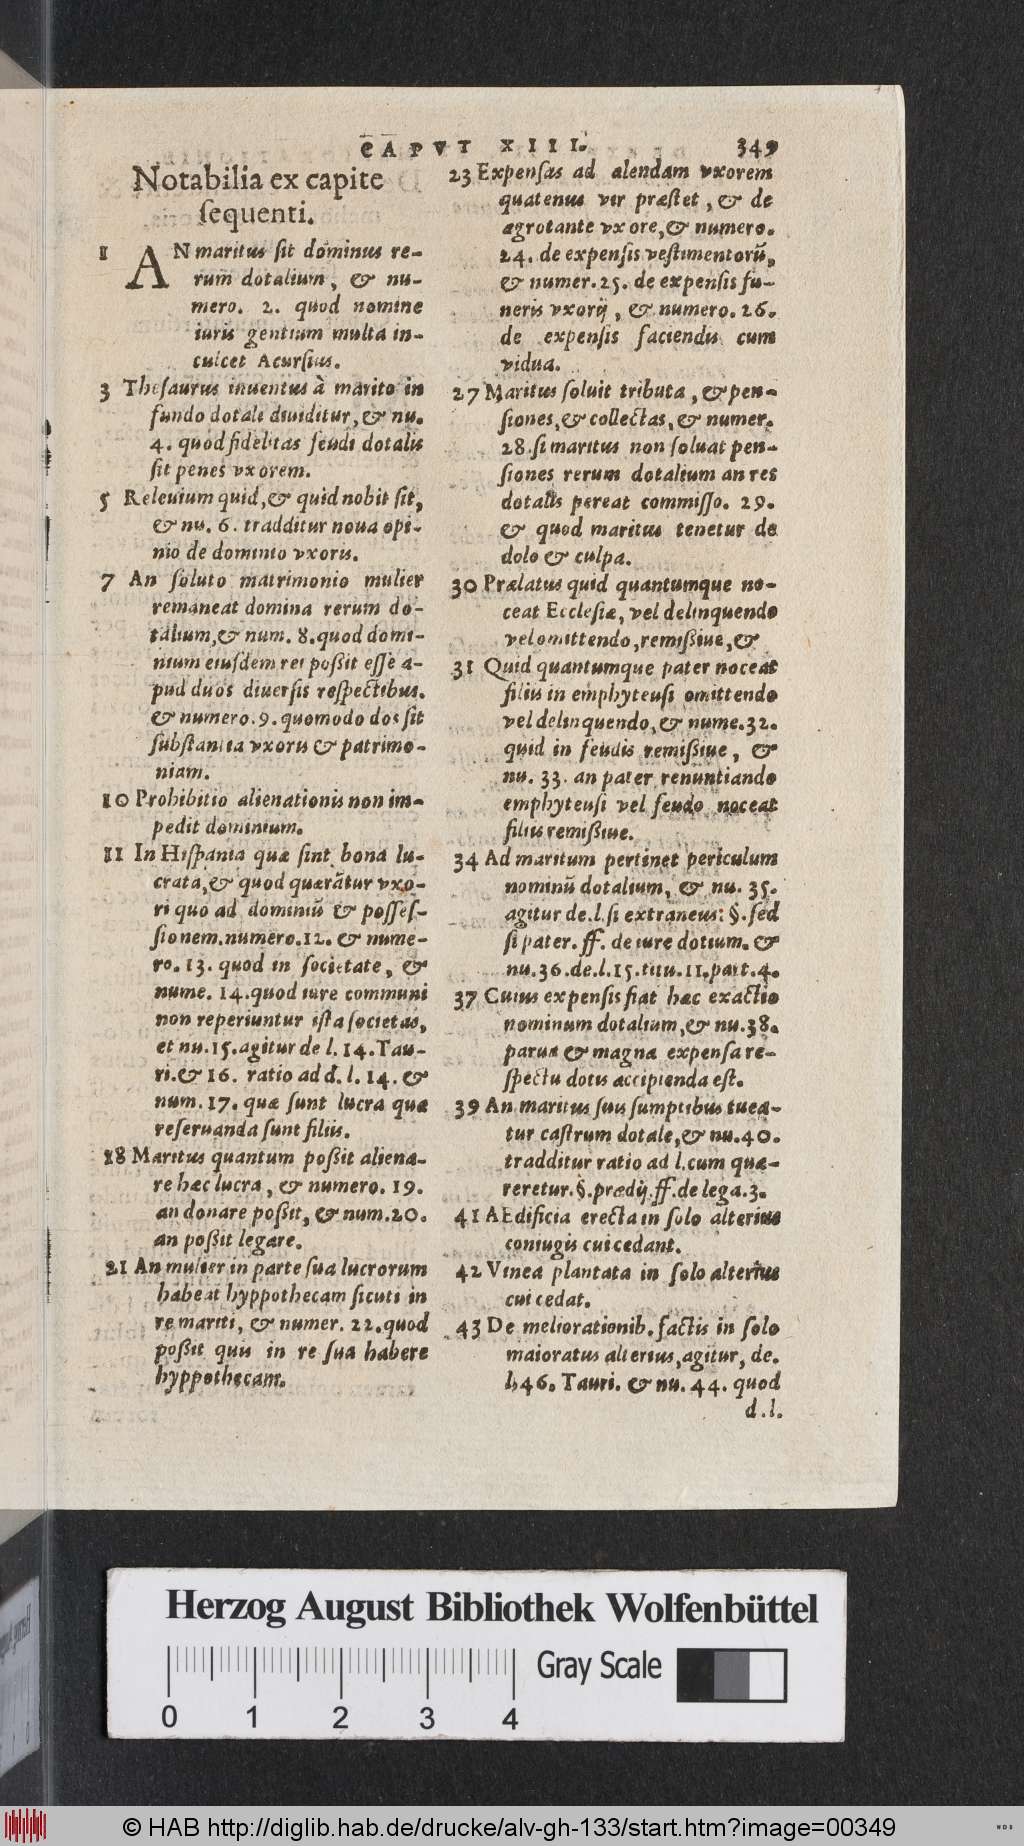 CAPVT XIII. 349
Notabilia ex capite
sequenti.
1 AN maritus sit dominus re-
rum dotalium, & nu-
mero. 2. quod nomine
iuris gentium multa in-
culcet Acursius.
3 Thesaurus inuentus à marito in
fundo dotali diuiditur, & nu.
4. quod fidelitas feudi dotalis
sit penes vxorem.
5 Releuium quid, & quid nobit sit,
& nu. 6. tradditur noua opi-
nio de dominio vxoris.
7 An soluto matrimonio mulier
remaneat domina rerum do-
talium, & num. 8. quod domi-
nium eiusdem rei poßit esse a-
pud duos diuersis respectibus.
& numero. 9. quomodo dos sit
substantia vxoris & patrimo-
niam.
10 Prohibitio alienationis non im-
pedit dominium.
11 In Hispania quæ sint bona lu-
crata, & quod quærãtur vxo-
ri quo ad dominiũ & posses-
sionem. numero. 12. & nume-
ro. 13. quod in societate, &
nume. 14. quod iure communi
non reperiuntur ista societas,
et nu. 15. agitur de l. 14. Tau-
ri. & 16. ratio ad d. l. 14. &
num. 17. quæ sunt lucra quæ
reseruanda sunt filiis.
18 Maritus quantum poßit aliena-
re hæc lucra, & numero. 19.
an donare poßit, & num. 20.
an poßit legare.
21 An mulier in parte sua lucrorum
habeat hyppothecam sicuti in
re mariti, & numer. 22. quod
poßit quis in re sua habere
hyppothecam.
23 Expensas ad alendam vxorem
quatenus vir præstet, & de
ægrotante vxore, & numero.
24. de expensis vestimentorũ,
& numer. 25. de expensis fu-
neris vxorij, & numero. 26.
de expensis faciendis cum
vidua.
27 Maritus soluit tributa, & pen-
siones, & collectas, & numer.
28. si maritus non soluat pen-
siones rerum dotalium an res
dotalis pereat commisso. 29.
& quod maritus tenetur de
dolo & culpa.
30 Prælatus quid quantumque no-
ceat Ecclesiæ, vel delinquendo
vel omittendo, remißiue, &
31 Quid quantumque pater noceat
filius in emphyteusi omittendo
vel delinquendo, & nume. 32.
quid in feudis remißiue, &
nu. 33. an pater renuntiando
emphyteusi vel feudo noceat
filius remißiue.
34 Ad maritum pertinet periculum
nominũ dotalium, & nu. 35.
agitur de. l. si extraneus: §. sed
si pater. ff. de iure dotium. &
nu. 36. de. l. 15. titu. 11. part. 4.
37 Cuius expensis fiat hæc exactio
nominum dotalium, & nu. 38.
paruæ & magnæ expensa re-
spectu dotis accipienda est.
39 An maritus suis sumptibus tuea-
tur castrum dotale, & nu. 40.
tradditur ratio ad l. cum quæ-
reretur. §. prædij. ff. de lega. 3.
41 AEdificia erecta in solo alterius
coniugis cui cedant.
42 Vinea plantata in solo alterius
cui cedat.
43 De meliorationib. factis in solo
maioratus alterius, agitur, de.
l, 46. Tauri. & nu. 44. quod
d. l.
Herzog August Bibliothek Wolfenbüttel
Gray Scale
0 1 2 3 4
© HAB http://diglib.hab.de/drucke/alv-gh-133/start.htm?image=00349